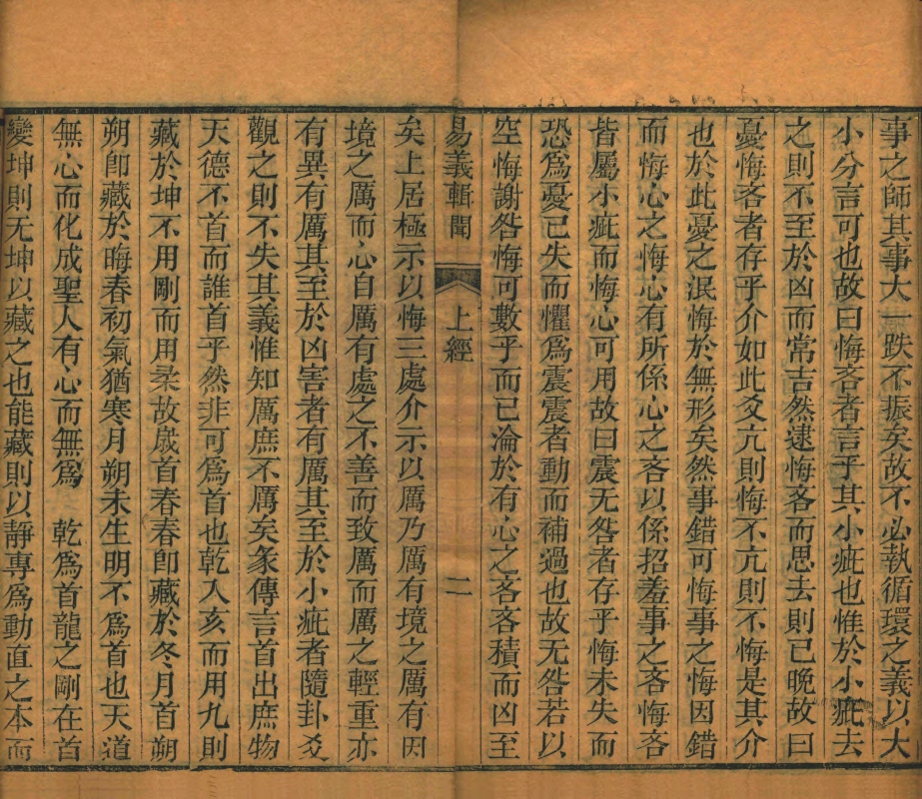 事之師其事大一跌不振矣故不必執循環之義以大
小分言可也故曰悔吝者言乎其小疵也惟於小疵去
之則不至於凶而常吉然逮悔吝而思去則已晚故曰
憂悔吝者存乎介如此爻亢則悔不亢則不悔是其介
也於此憂之泯悔於無形矣然事錯可悔事之悔因錯
而悔心之悔心有所係心之吝以係招羞事之吝悔吝
皆屬小疵而悔心可用故曰震无咎者存乎悔未失而
恐爲憂已失而懼爲震震者動而補過也故无咎若以
空悔謝咎悔可數乎而已淪於有心之吝吝積而凶至
易義輯聞 上經 二
矣上居極示以悔三處介示以厲乃厲有境之厲有因
境之厲而心自厲有處之不善而致厲而厲之輕重亦
有異有厲其至於凶害者有厲其至於小疵者隨卦爻
觀之則不失其義惟知厲庶不厲矣彖傳言首出庶物
天德不首而誰首乎然非可爲首也乾入亥而用九則
藏於坤不用剛而用柔故歲首春春卽藏於冬月首朔
朔卽藏於晦春初氣猶寒月朔未生明不爲首也天道
無心而化成聖人有心而無爲 乾爲首龍之剛在首
變坤則无坤以藏之也能藏則以靜專爲動直之本而